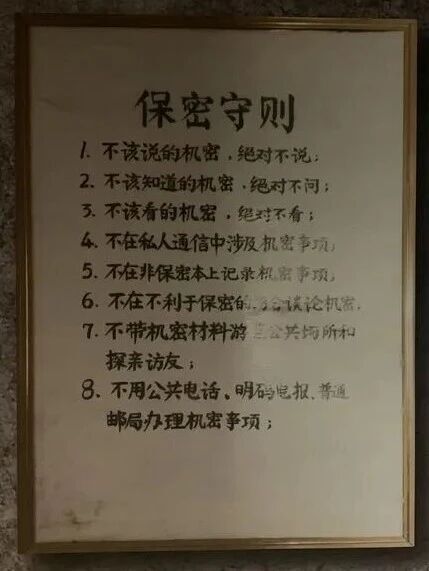 保密守则
1. 不该说的机密，绝对不说；
2. 不该知道的机密，绝对不问；
3. 不该看的机密，绝对不看；
4. 不在私人通信中涉及机密事项；
5. 不在非保密本上记录机密事项；
6. 不在不利于保密的 谈论机密．
7. 不带机密材料游 公共场所和
探亲访友；
8. 不用公共电话、明码电报、普通
邮局办理机密事项；